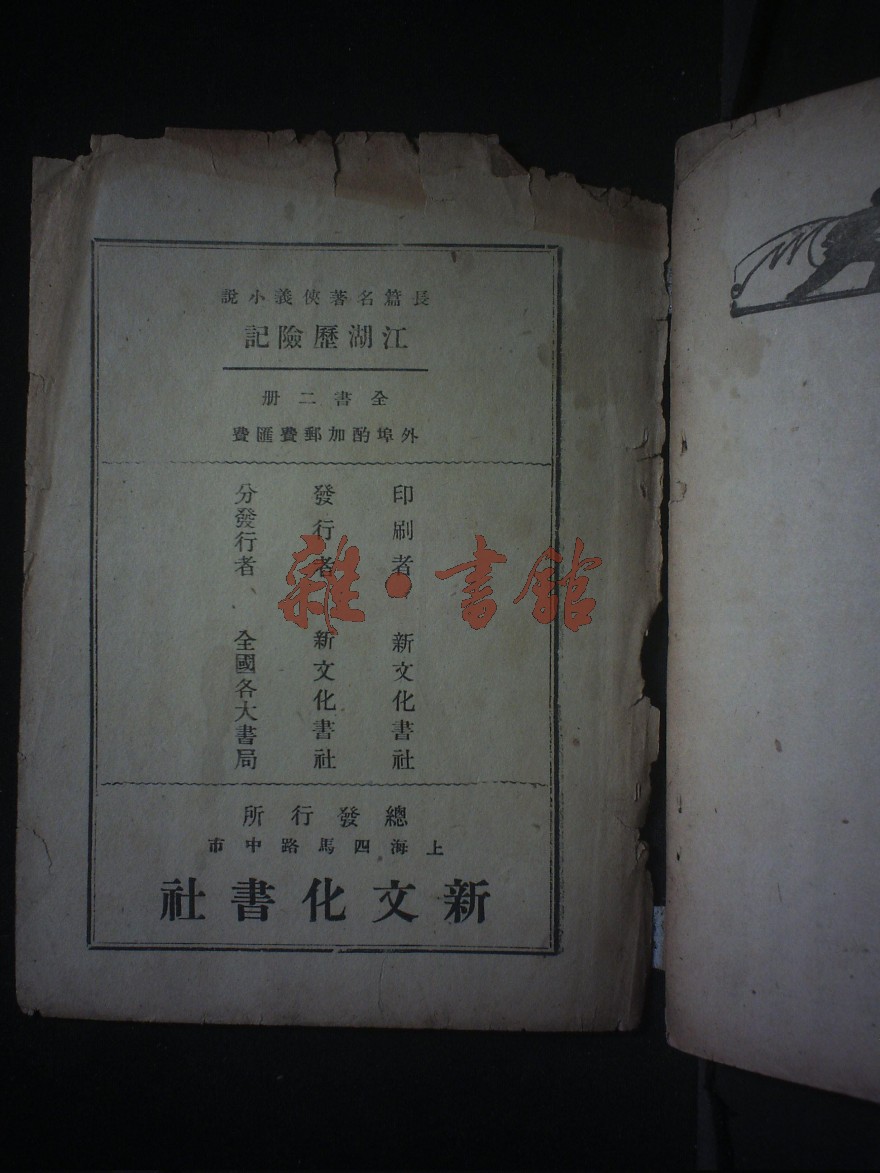 長篇名著俠義小說
江湖歷險記
全書二册
外埠酌加郵費匯費
印刷者 新文化書社
發行者 新文化書社
分發行者 全國各大書局
總發行所
上海四馬路中市
新文化書社
雜·書館